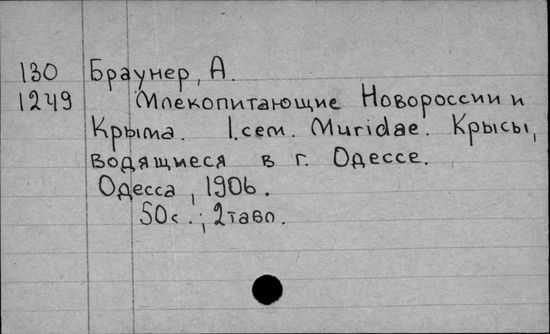 130 Браунер, А.
1249 Млекопитающие Новороссии и
Крыма. I.сем. Muridae. Крысы,
водящиеся в г. Одессе.
Одесса, 1906.
50с.; 2табл.